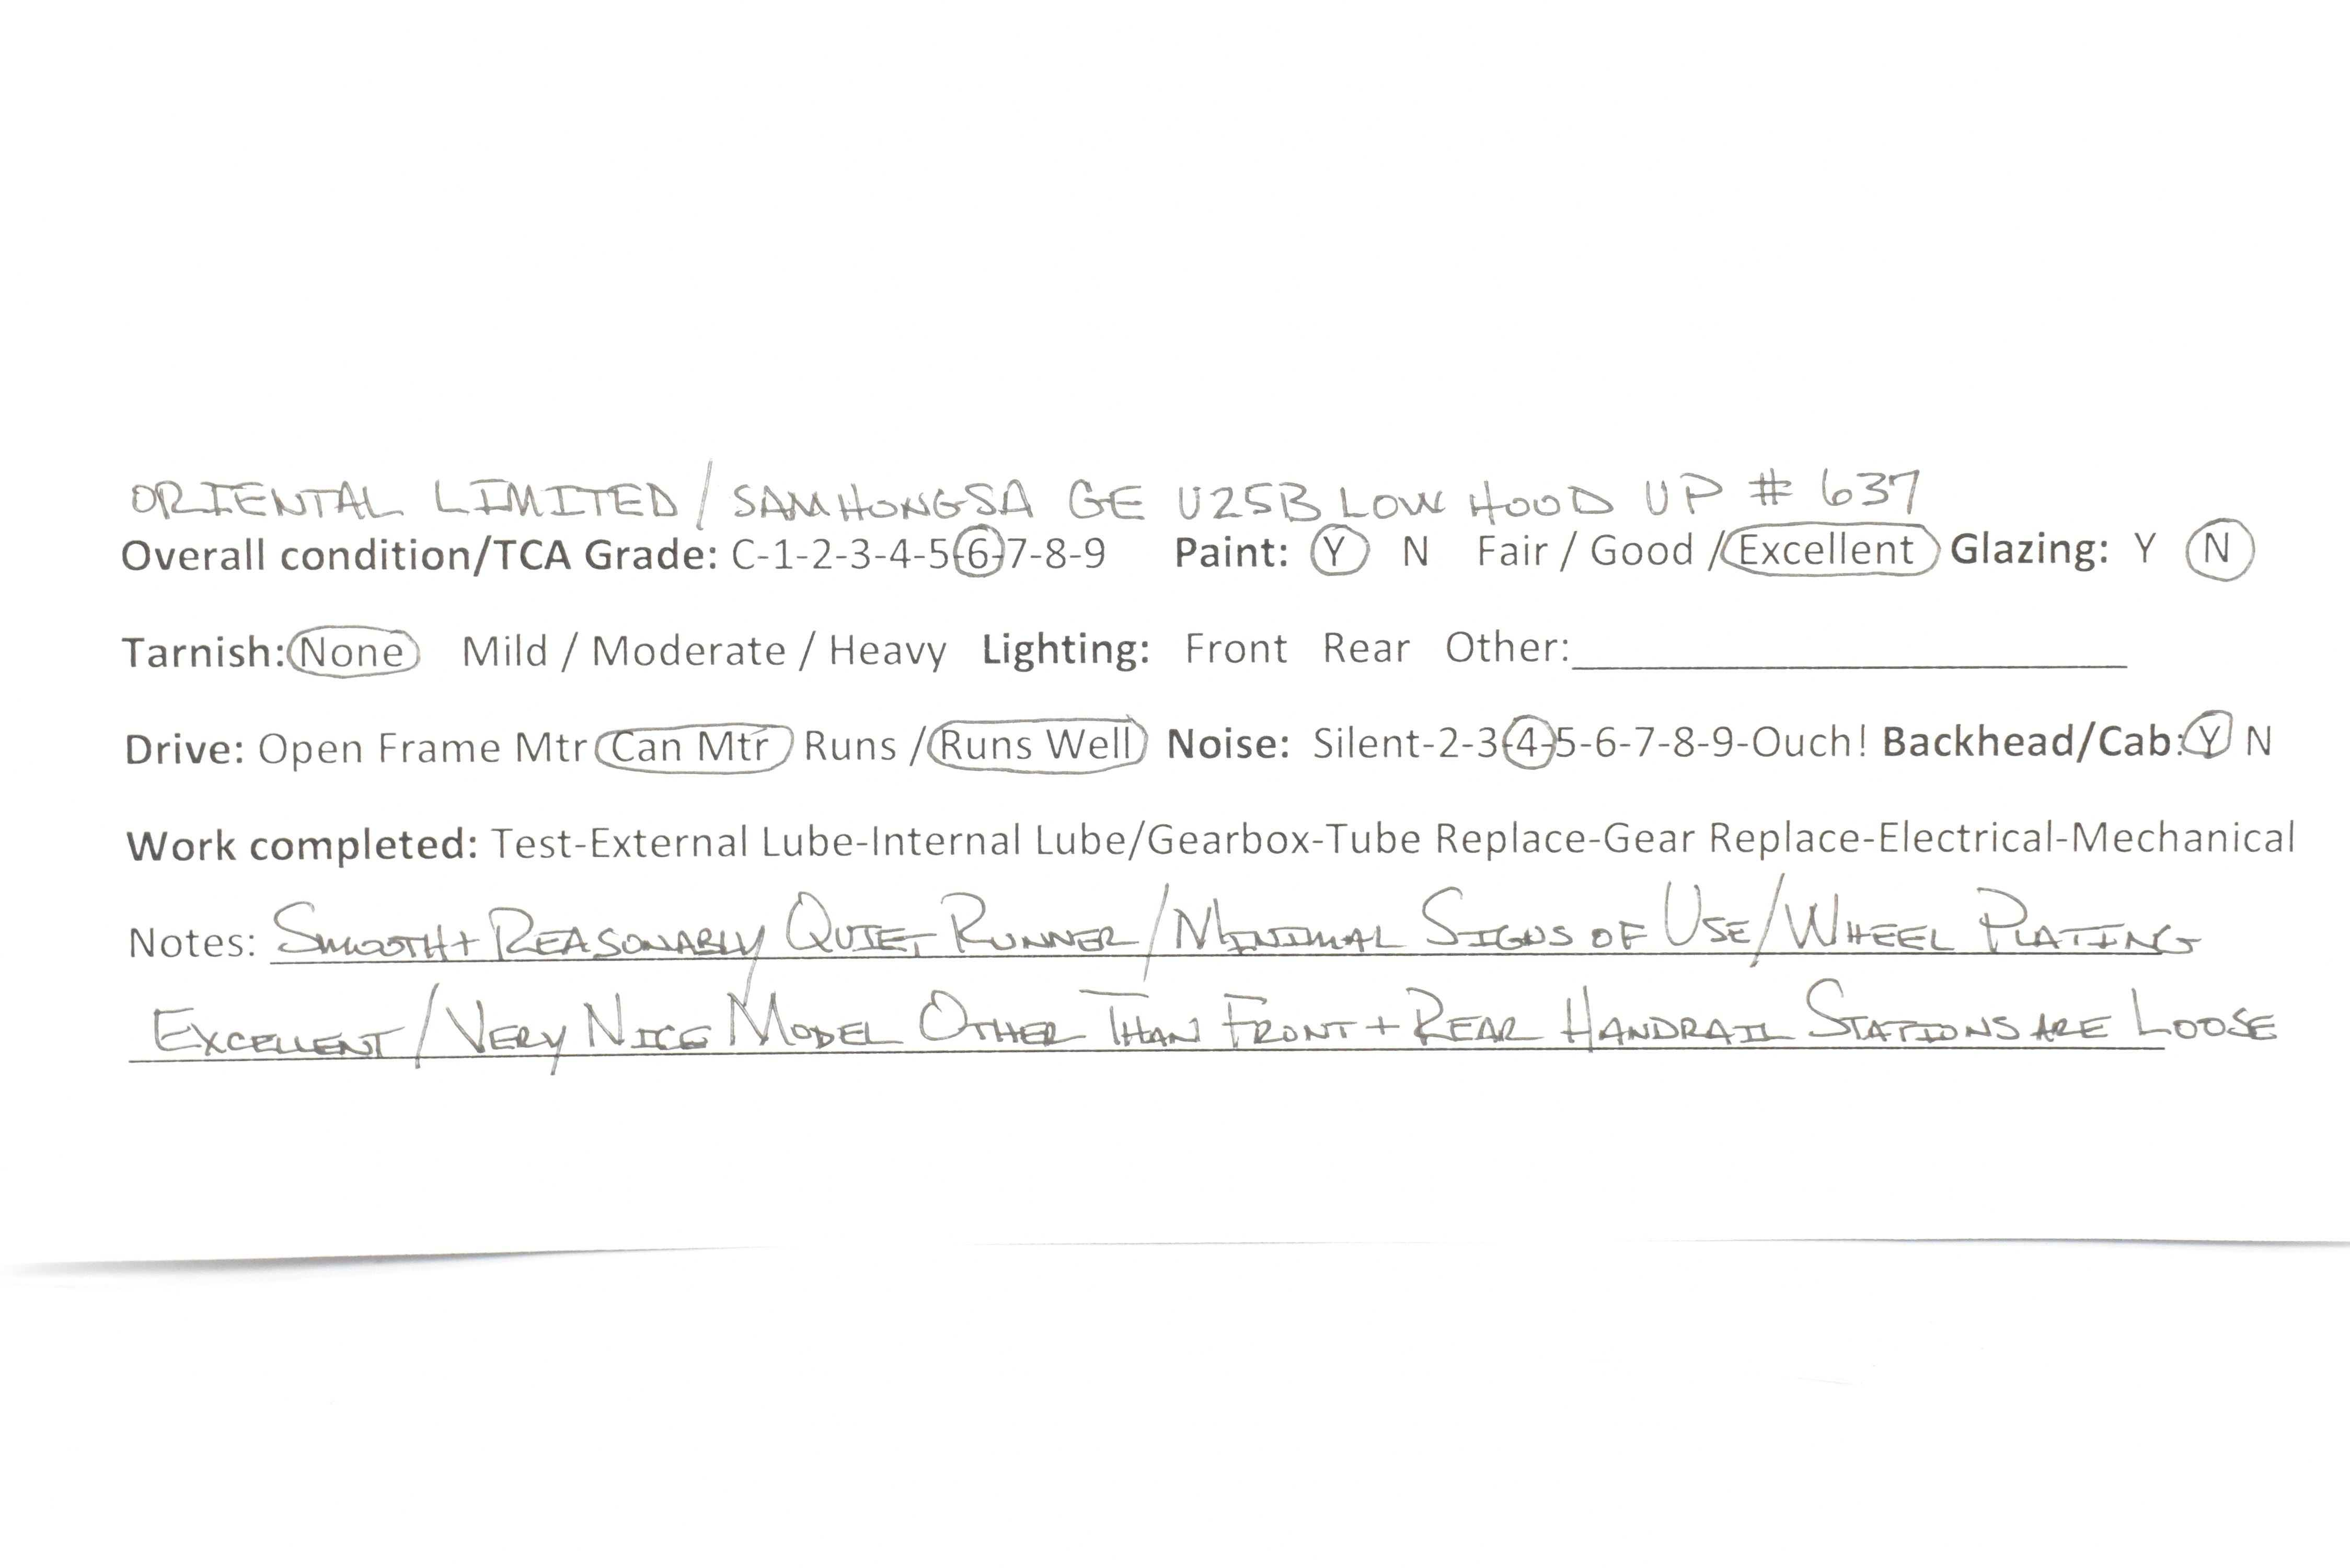 ORIENTAL LIMITED/SAMHONGSA GE U25B LOW HOOD UP # 637
Overall condition/TCA Grade: C-1-2-3-4-5-6-7-8-9 Paint: Y N Fair / Good / Excellent Glazing: Y N
Tarnish: None Mild / Moderate / Heavy Lighting: Front Rear Other:
Drive: Open Frame Mtr Can Mtr Runs / Runs Well Noise: Silent-2-3-4-5-6-7-8-9-Ouch! Backhead/Cab: Y N
Work completed: Test-External Lube-Internal Lube/Gearbox-Tube Replace-Gear Replace-Electrical-Mechanical
Notes: SMOOTH + REASONABLY QUIET RUNNER/MINIMAL SIGNS OF USE/WHEEL PLATING
EXCELLENT/VERY NICE MODEL OTHER THAN FRONT + REAR HANDRAIL STATIONS ARE LOOSE